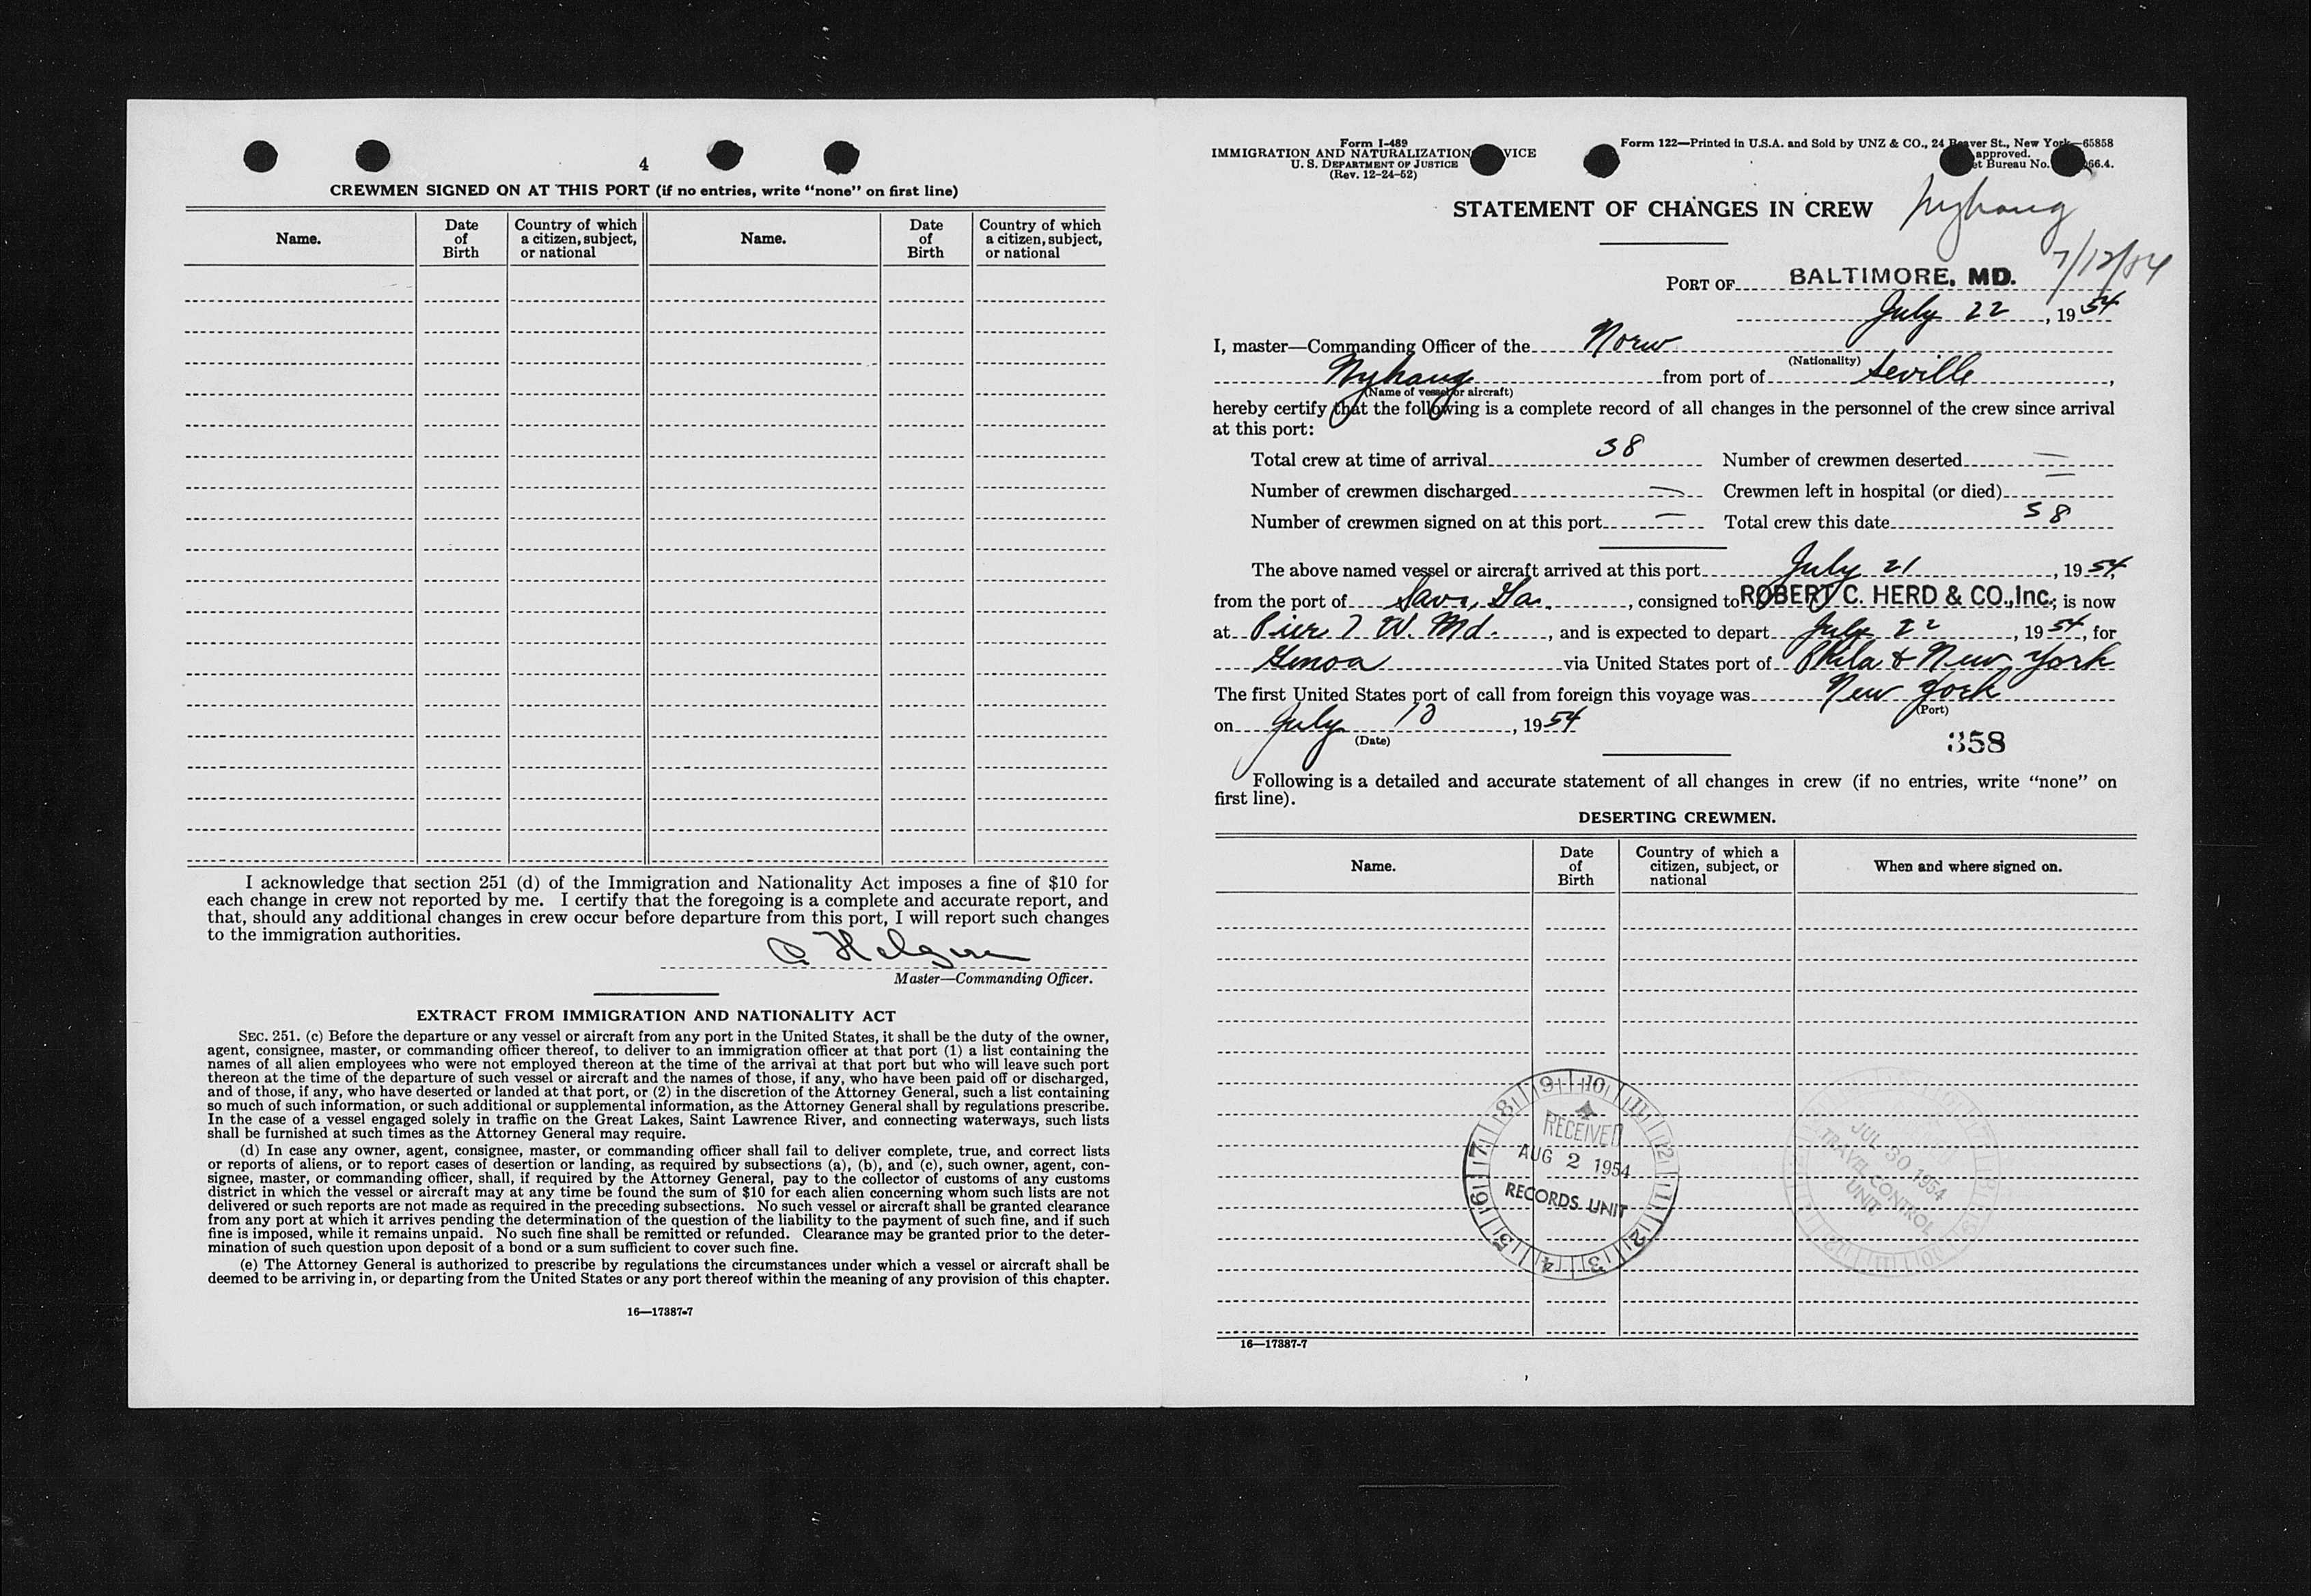 4
CREWMEN SIGNED ON AT THIS PORT (if no entries, write “none” on first line)
Name.
Date of Birth
Country of which a citizen, subject, or national
Name.
Date of Birth
Country of which a citizen, subject, or national
I acknowledge that section 251 (d) of the Immigration and Nationality Act imposes a fine of $10 for
each change in crew not reported by me. I certify that the foregoing is a complete and accurate report, and
that, should any additional changes in crew occur before departure from this port, I will report such changes
to the immigration authorities.
Master—Commanding Officer.
EXTRACT FROM IMMIGRATION AND NATIONALITY ACT
SEC. 251. (c) Before the departure or any vessel or aircraft from any port in the United States, it shall be the duty of the owner,
agent, consignee, master, or commanding officer thereof, to deliver to an immigration officer at that port (1) a list containing the
names of all alien employees who were not employed thereon at the time of the arrival at that port but who will leave such port
thereon at the time of the departure of such vessel or aircraft and the names of those, if any, who have been paid off or discharged,
and of those, if any, who have deserted or landed at that port, or (2) in the discretion of the Attorney General, such a list containing
so much of such information, or such additional or supplemental information, as the Attorney General shall by regulations prescribe.
In the case of a vessel engaged solely in traffic on the Great Lakes, Saint Lawrence River, and connecting waterways, such lists
shall be furnished at such times as the Attorney General may require.
(d) In case any owner, agent, consignee, master, or commanding officer shall fail to deliver complete, true, and correct lists
or reports of aliens, or to report cases of desertion or landing, as required by subsections (a), (b), and (c), such owner, agent, con-
signee, master, or commanding officer, shall, if required by the Attorney General, pay to the collector of customs of any customs
district in which the vessel or aircraft may at any time be found the sum of $10 for each alien concerning whom such lists are not
delivered or such reports are not made as required in the preceding subsections. No such vessel or aircraft shall be granted clearance
from any port at which it arrives pending the determination of the question of the liability to the payment of such fine, and if such
fine is imposed, while it remains unpaid. No such fine shall be remitted or refunded. Clearance may be granted prior to the deter-
mination of such question upon deposit of a bond or a sum sufficient to cover such fine.
(e) The Attorney General is authorized to prescribe by regulations the circumstances under which a vessel or aircraft shall be
deemed to be arriving in, or departing from the United States or any port thereof within the meaning of any provision of this chapter.
16—17387-7
Form I-489
IMMIGRATION AND NATURALIZATION VICE
U. S. DEPARTMENT OF JUSTICE
(Rev. 12-24-52)
Form 122—Printed in U.S.A. and Sold by UNZ & CO., 24 Beaver St., New York—65858
approved.
et Bureau No. 66.4.
STATEMENT OF CHANGES IN CREW Nyhaug
PORT OF BALTIMORE, MD.
July 22, 1954
I, master—Commanding Officer of the Norw
(Nationality)
Nyhaug from port of Seville,
(Name of vessel or aircraft)
hereby certify that the following is a complete record of all changes in the personnel of the crew since arrival
at this port:
Total crew at time of arrival 38 Number of crewmen deserted —
Number of crewmen discharged — Crewmen left in hospital (or died) —
Number of crewmen signed on at this port — Total crew this date 38
The above named vessel or aircraft arrived at this port July 21, 1954,
from the port of Sav., Ga., consigned to ROBERT C. HERD & CO., Inc.; is now
at Pier 7 W. Md., and is expected to depart July 22, 1954, for
Genoa via United States port of Phila & New York
The first United States port of call from foreign this voyage was New York
(Port)
on July 10, 1954
(Date)
358
Following is a detailed and accurate statement of all changes in crew (if no entries, write “none” on
first line).
DESERTING CREWMEN.
Name.
Date of Birth
Country of which a citizen, subject, or national
When and where signed on.
RECEIVED
AUG 2 1954
RECORDS UNIT
9 10 11 12 1 2 3 4 5 6 7 8
JUL 30 1954
TRAVEL CONTROL
UNIT
16—17387-7